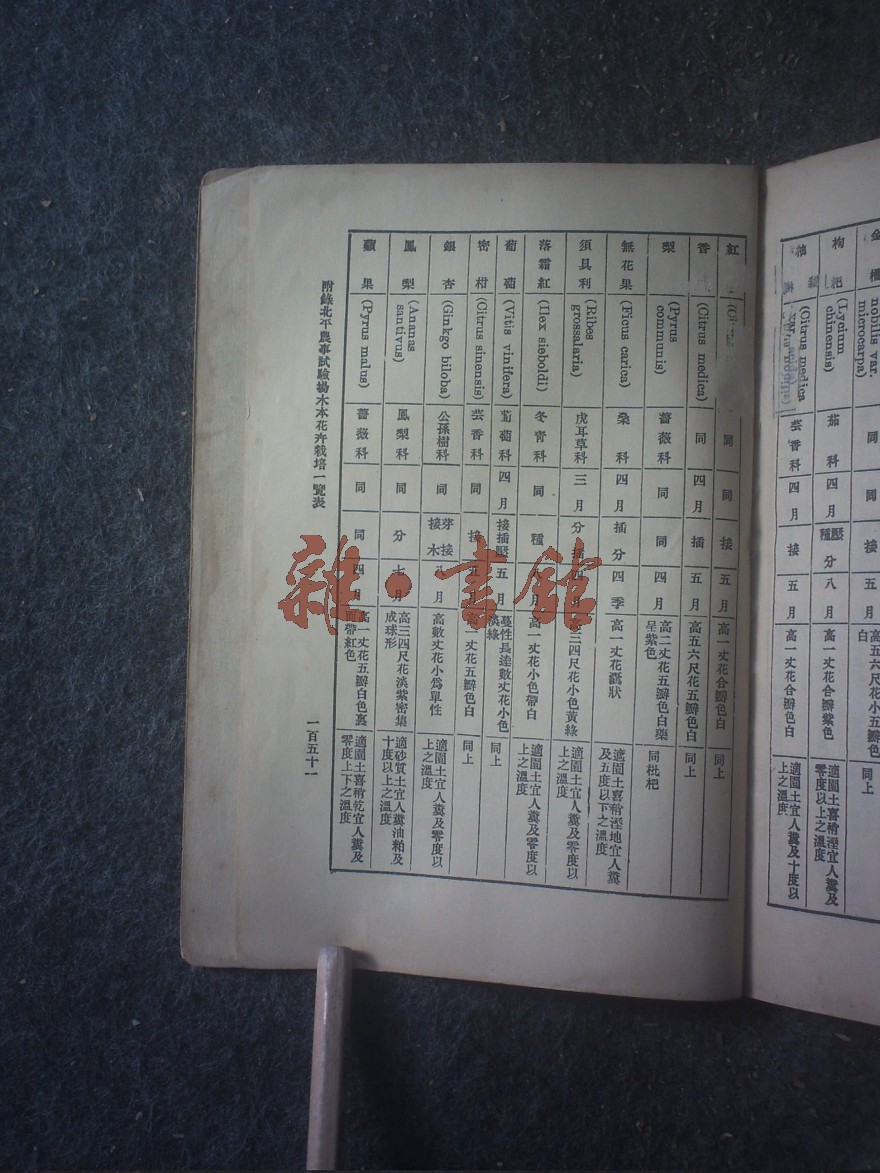 金橘
nobilis var. microcarpa)
同
同
接
五
高五六尺花小五瓣白
同上
枸杞
(Lycium chinensis)
茄科
四月
種壓分
八月
高一丈花合瓣紫色
適園土喜稍溼宜人糞及零度以上之溫度
柚
(Citrus medica
芸香科
四月
接
五月
高一丈花合瓣色白
適園土宜人糞及十度以上之溫度
紅
同
同
接
五月
高一丈花合瓣色白
同上
香
(Citrus medica)
同
四月
插
五月
高五六尺花五瓣色白
同上
梨
(Pyrus communis)
薔薇科
同
同
四月
高二丈花五瓣色白藥呈紫色
同枇杷
無花果
(Ficus carica)
桑科
四月
插分
四季
高一丈花囊狀
適園土喜稍溼地宜人糞及五度以下之溫度
須具利
(Ribes grossalaria)
虎耳草科
三月
分插
四月
三四尺花小色黃綠
適園土宜人糞及零度以上之溫度
落霜紅
(Ilex sieboldi)
冬青科
同
種
八
高一丈花小色帶白
適園土宜人糞及零度以上之溫度
葡萄
(Vitis vinifera)
葡萄科
四月
接插壓
五月
蔓性長達數丈花小色淡綠
同上
密柑
(Citrus sinensis)
芸香科
同
接
五
高一丈花五瓣色白
同上
銀杏
(Ginkgo biloba)
公孫樹科
同
芽接接木
八月
高數丈花小爲單性
適園土宜人糞及零度以上之溫度
鳳梨
(Ananas santivus)
鳳梨科
同
分
七月
高三四尺花淡紫密集成球形
適砂質土宜人糞油粕及十度以上之溫度
蘋果
(Pyrus malus)
薔薇科
同
同
四月
高一丈花五瓣白色裏面帶紅色
適園土喜稍乾宜人糞及零度上下之溫度
附錄北平農事試驗場木本花卉栽培一覽表
一百五十一
雜·書館